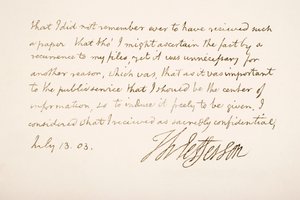 that I did not remember ever to have recieved such
a paper. that tho' I might ascertain the fact by a
recurrence to my files, yet it was unnecessary for
another reason, which was, that as it was important
to the public service that I should be the center of
information, so to induce it freely to be given, I
considered what I recieved as sacredly confidential,
July 13. 03.
Th Jefferson